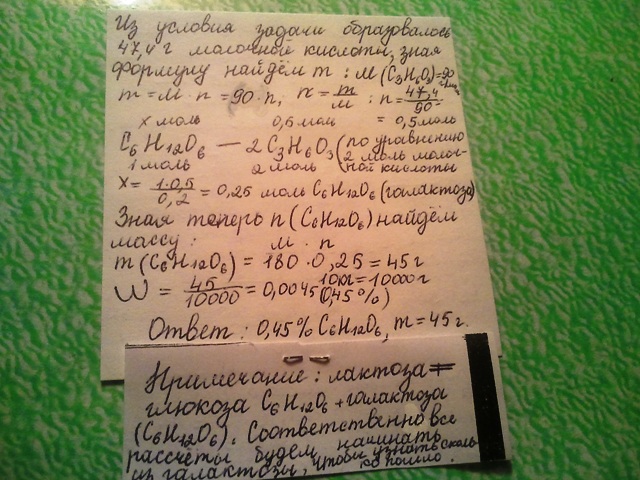 Из условия задачи образовалось
47,4 г молочной кислоты, зная
формулу найдём m : M (C3H6O3)=90
m = M · n = 90 · n; n = m/M : n = 47,4/90
x моль 0,6 моль = 0,5 моль
C6H12O6 — 2C3H6O3 (по уравнению
1 моль 2 моль 2 моль молоч-
ной кислоты
x = 1·0,5/0,2 = 0,25 моль C6H12O6 (галактоза)
Зная теперь n (C6H12O6) найдём
массу: M · n
m (C6H12O6) = 180 · 0,25 = 45 г
10кг = 10000 г
W = 45/10000 = 0,0045 (0,45%)
Ответ: 0,45% C6H12O6, m = 45 г.
Примечание: лактоза =
глюкоза C6H12O6 + галактоза
(C6H12O6). Соответственно все
рассчёты будем начинать
из галактозы, чтобы узнать сколь
ко пошло.